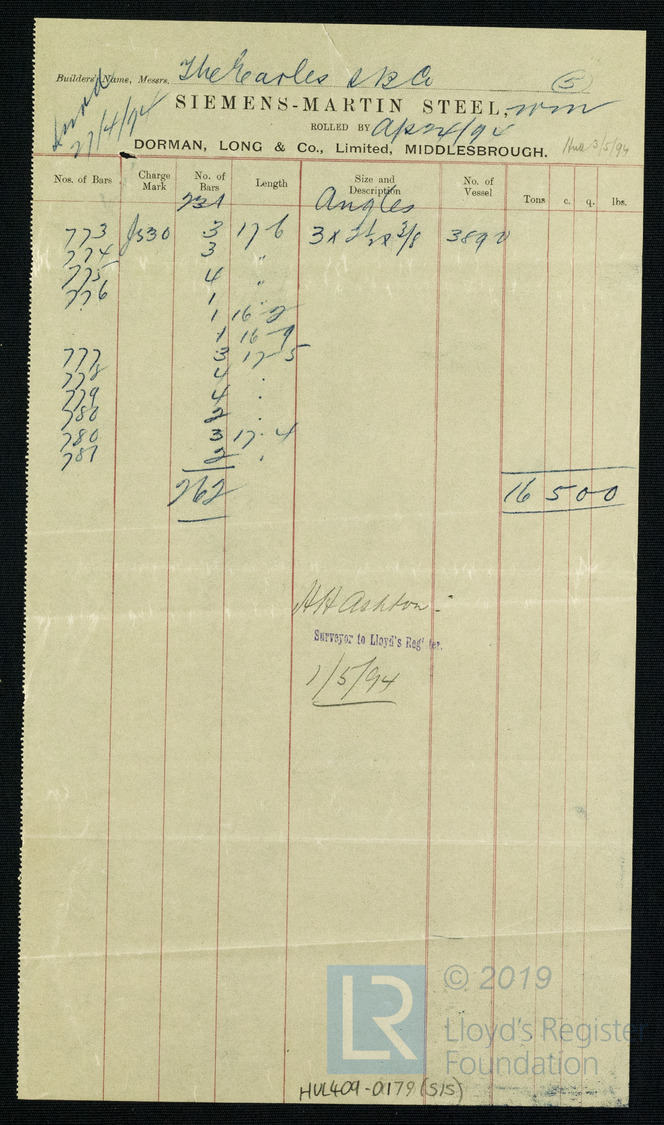 Builders' Name, Messrs. The Earles S B Co (5)
27/4/94
SIEMENS-MARTIN STEEL,
ROLLED BY Apr 24/94
DORMAN, LONG & Co., Limited, MIDDLESBROUGH. Hull 3/5/94
Nos. of Bars Charge Mark No. of Bars Length Size and Description No. of Vessel Tons c. q. lbs.
231 Angles
773 J530 3 17 6 3 x 2½ x 3/8 389
774 3 "
775 4 "
776 1 "
1 16 2
1 16 9
777 3 17 5
778 4 "
779 4 "
780 2 "
780 3 17 4
781 2 "
262 16 5 0 0
H H Ashton
Surveyor to Lloyd's Register.
1/5/94
LR © 2019
Lloyd's Register
Foundation
HUL409-0179(5/5)